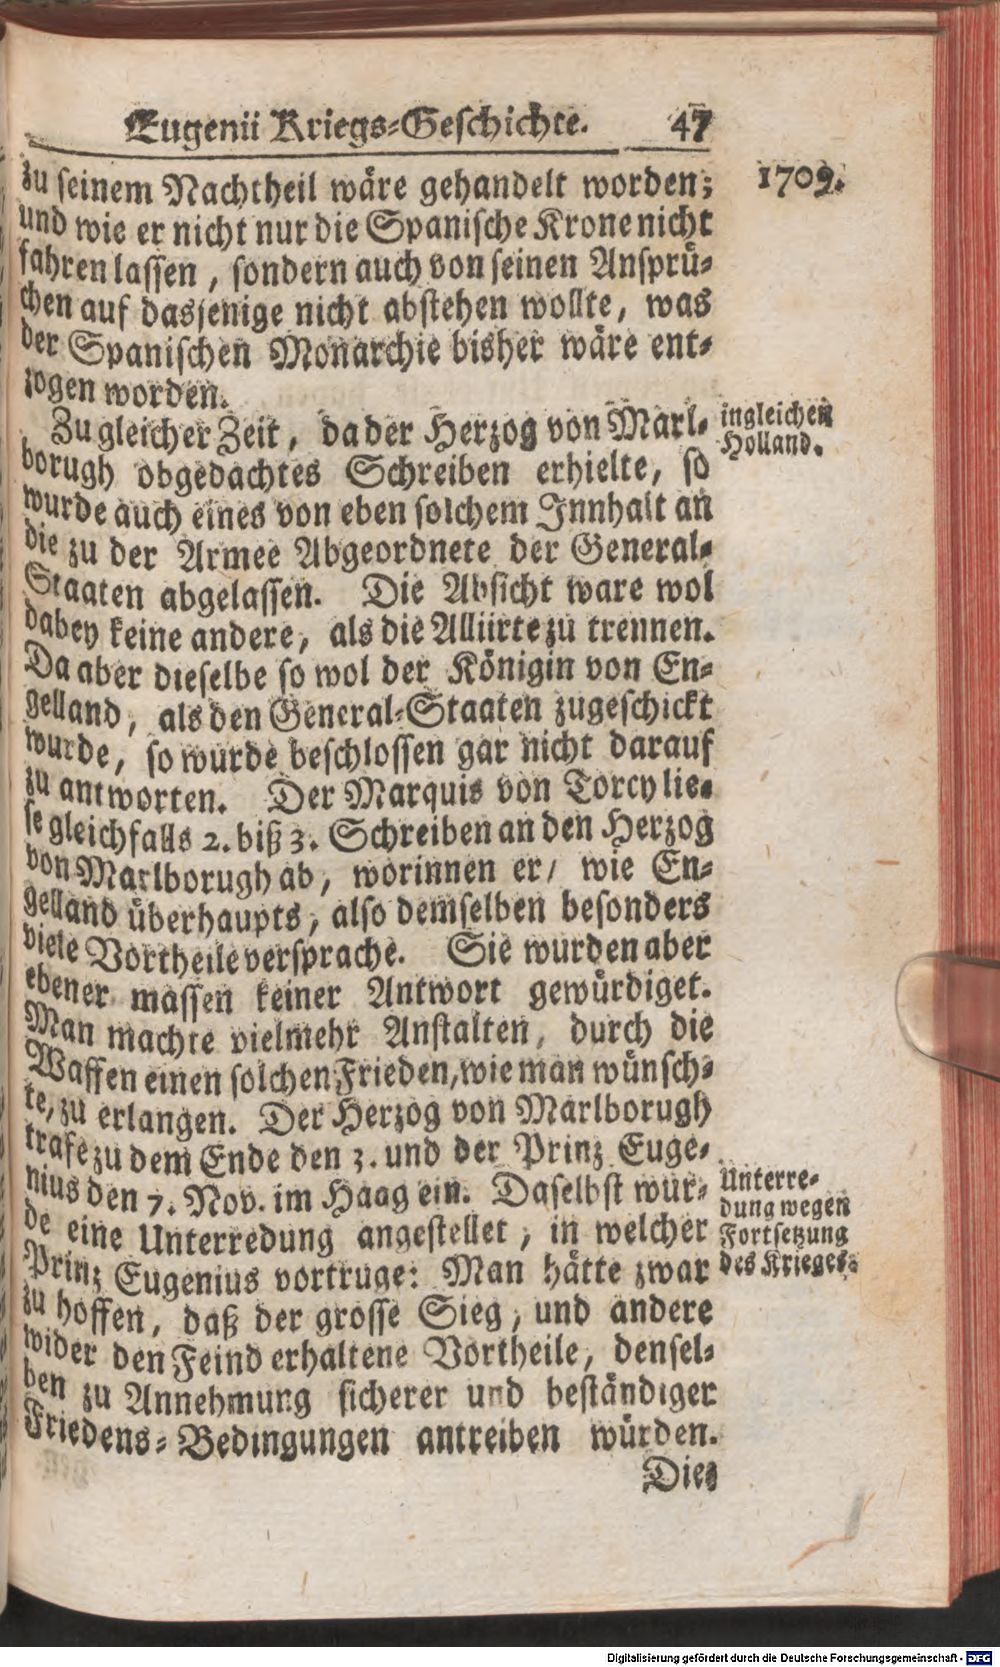 Eugenii Kriegs-Geschichte. 47
1709.
zu seinem Nachtheil wäre gehandelt worden;
und wie er nicht nur die Spanische Krone nicht
fahren lassen, sondern auch von seinen Ansprü-
chen auf dasjenige nicht abstehen wollte, was
der Spanischen Monarchie bisher wäre ent-
zogen worden.
Zu gleicher Zeit, da der Herzog von Marl-
ingleichen
Holland.
borugh obgedachtes Schreiben erhielte, so
wurde auch eines von eben solchem Innhalt an
die zu der Armee Abgeordnete der General-
Staaten abgelassen. Die Absicht ware wol
dabey keine andere, als die Alliirte zu trennen.
Da aber dieselbe so wol der Königin von En-
gelland, als den General-Staaten zugeschickt
wurde, so wurde beschlossen gar nicht darauf
zu antworten. Der Marquis von Torcy lie-
se gleichfalls 2. biß 3. Schreiben an den Herzog
von Marlborugh ab, worinnen er/ wie En-
gelland überhaupts, also demselben besonders
viele Vortheile versprache. Sie wurden aber
ebener massen keiner Antwort gewürdiget.
Man machte vielmehr Anstalten, durch die
Waffen einen solchen Frieden, wie man wünsch-
te, zu erlangen. Der Herzog von Marlborugh
trafe zu dem Ende den 3. und der Prinz Euge-
nius den 7. Nov. im Haag ein. Daselbst wur-
Unterre-
dung wegen
Fortsetzung
des Krieges.
de eine Unterredung angestellet, in welcher
Prinz Eugenius vortruge: Man hätte zwar
zu hoffen, daß der grosse Sieg, und andere
wider den Feind erhaltene Vortheile, densel-
ben zu Annehmung sicherer und beständiger
Friedens-Bedingungen antreiben würden.
Die-
Digitalisierung gefördert durch die Deutsche Forschungsgemeinschaft - DFG